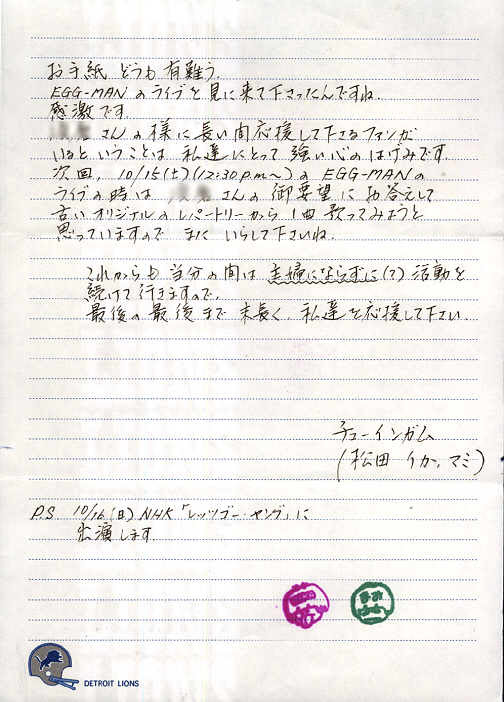 お手紙 どうも有難う.
EGG-MANのライブを見に来て下さったんですね.
感激です.
さんの様に長い間応援して下さるファンが
いるということは 私達にとって強い心のはげみです.
次回, 10/15(土)(12:30p.m~)のEGG-MANの
ライブの時は さんの御要望にお答えして
古いオリジナルのレパートリーから1曲歌ってみようと
思っていますので またいらして下さいね.
これからも当分の間は主婦にならずに(?)活動を
続けて行きますので,
最後の最後まで末長く, 私達を応援して下さい.
チューインガム
(松田 イカ, マミ)
P.S. 10/16(日) NHK「レッツゴー・ヤング」に
出演します.
DETROIT LIONS